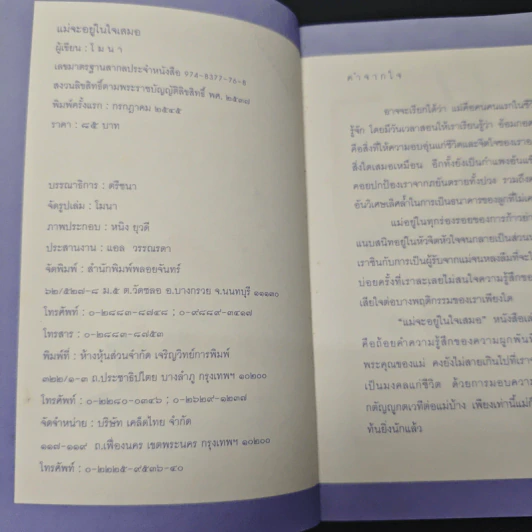 แม่จะอยู่ในใจเสมอ
ผู้เขียน : โมนา
เลขมาตรฐานสากลประจำหนังสือ 974-8377-76-8
สงวนลิขสิทธิ์ตามพระราชบัญญัติลิขสิทธิ์ พศ. ๒๕๓๗
พิมพ์ครั้งแรก : กรกฎาคม ๒๕๔๕
ราคา : ๘๕ บาท
บรรณาธิการ : ตรีชนา
จัดรูปเล่ม : โมนา
ภาพประกอบ : หนิง ยุวดี
ประสานงาน : แอล วรรณรดา
จัดพิมพ์ : สำนักพิมพ์พลอยจันทร์
๖๒/๕๒๗-๘ ม.๕ ต.วัดชลอ อ.บางกรวย จ.นนทบุรี ๑๑๑๓๐
โทรศัพท์ : ๐-๒๘๘๓-๘๗๔๘ ; ๐-๙๘๘๙-๓๔๑๗
โทรสาร : ๐-๒๘๘๓-๘๗๕๓
พิมพ์ที่ : ห้างหุ้นส่วนจำกัด เจริญวิทย์การพิมพ์
๓๒๒/๑-๓ ถ.ประชาธิปไตย บางลำภู กรุงเทพฯ ๑๐๒๐๐
โทรศัพท์ : ๐-๒๒๘๐-๐๓๔๖ ; ๐-๒๖๒๙-๑๒๓๗
จัดจำหน่าย : บริษัท เคล็ดไทย จำกัด
๑๑๗-๑๑๙ ถ.เฟื่องนคร เขตพระนคร กรุงเทพฯ ๑๐๒๐๐
โทรศัพท์ : ๐-๒๒๒๕-๙๕๓๖-๔๐
คำจากใจ
อาจจะเรียกได้ว่า แม่คือคนคนแรกในชี
รู้จัก โดยมีวันเวลาสอนให้เราเรียนรู้ว่า อ้อมกอด
คือสิ่งที่ให้ความอบอุ่นแก่ชีวิตและจิตใจของเราอ
สิ่งใดเสมอเหมือน อีกทั้งยังเป็นกำแพงอันแข็
คอยปกป้องเราจากภยันตรายทั้งปวง รวมถึงค
อันวิเศษเลิศล้ำในการเป็นธนาคารของลูกที่ไม่เค
แม่อยู่ในทุกร่องรอยของการก้าวย่า
แนบสนิทอยู่ในหัวจิตหัวใจจนกลายเป็นส่วนห
เราชินกับการเป็นผู้รับจากแม่จนหลงลืมที่จะใ
บ่อยครั้งที่เราละเลยไม่สนใจความรู้สึกของ
เสียใจต่อบางพฤติกรรมของเราเพียงใด
“แม่จะอยู่ในใจเสมอ” หนังสือเล่
คือถ้อยคำความรู้สึกของความผูกพันที่
พระคุณของแม่ คงยังไม่สายเกินไปที่เราจ
เป็นมงคลแก่ชีวิต ด้วยการมอบความ
กตัญญูกตเวทีต่อแม่บ้าง เพียงเท่านี้แม่ก็
ท้นยิ่งนักแล้ว